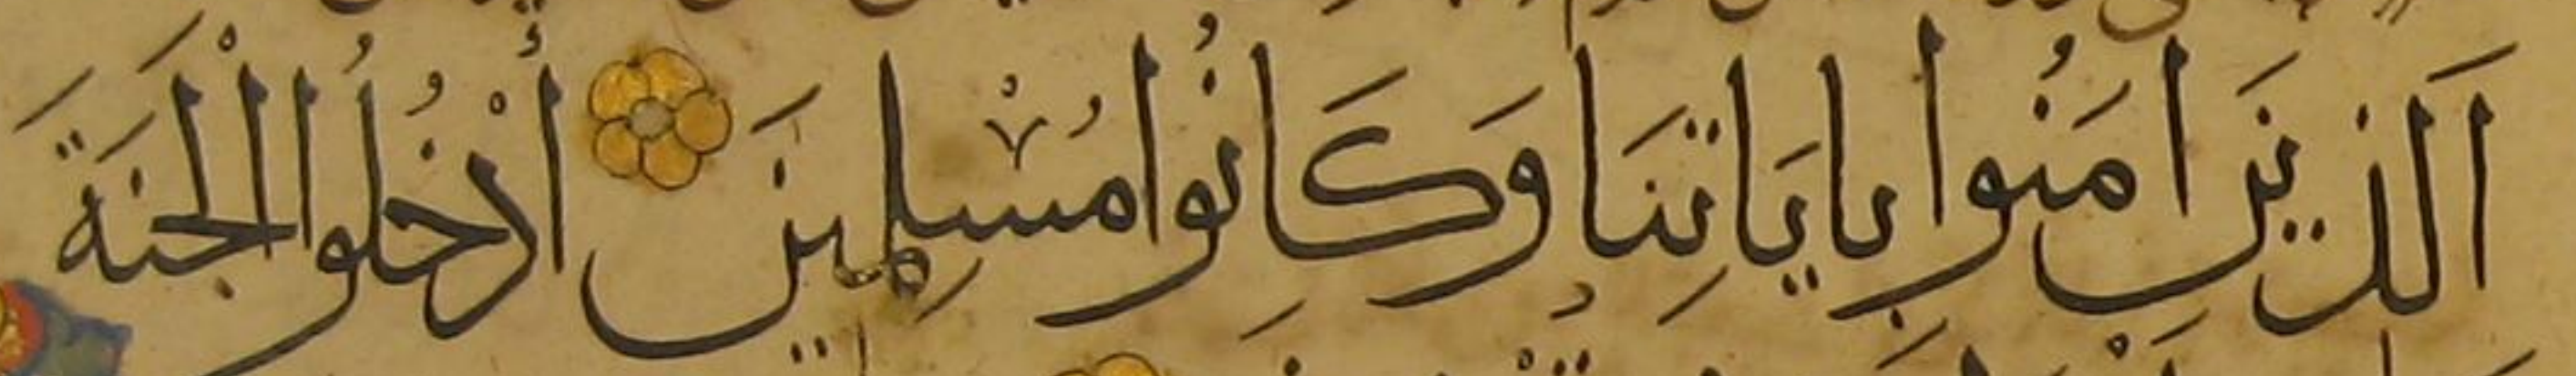 اَلَّذينَ اٰمَنُوا بِاٰيَاتِنَا وَكَانُوا مُسْلِمينَ اُدْخُلُوا الْجَنَّةَ